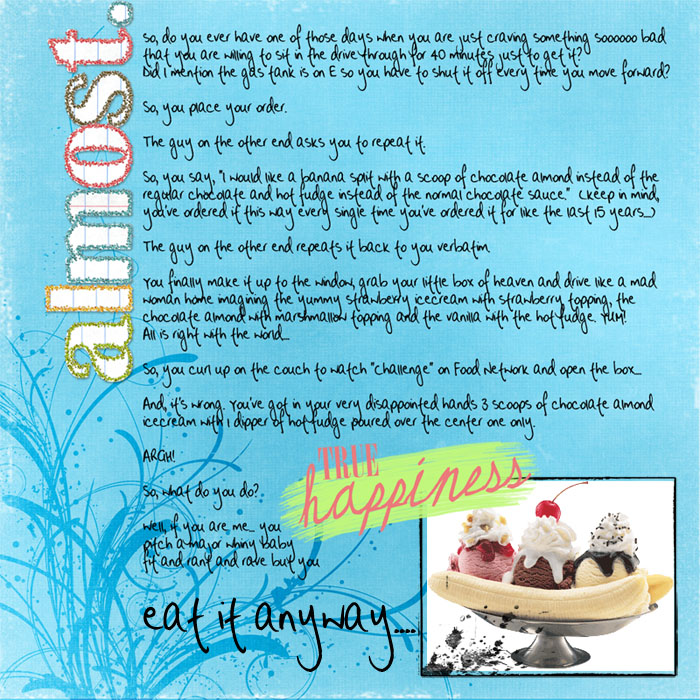 almost.
so, do you ever have one of those days when you are just craving something soooooo bad
that you are willing to sit in the drive through for 40 minutes just to get it?
Did I mention the gas tank is on E so you have to shut it off every time you move forward?
So, you place your order.
The guy on the other end asks you to repeat it.
So, you say, "I would like a banana split with a scoop of chocolate almond instead of the
regular chocolate and hot fudge instead of the normal chocolate sauce." (keep in mind,
you've ordered it this way every single time you've ordered it for like the last 15 years...)
The guy on the other end repeats it back to you verbatim.
You finally make it up to the window, grab your little box of heaven and drive like a mad
woman home imagining the yummy strawberry icecream with strawberry topping, the
chocolate almond with marshmallow topping and the vanilla with the hot fudge. YUM!
All is right with the world...
So, you curl up on the couch to watch "challenge" on Food Network and open the box...
And, it's wrong. You've got in your very disappointed hands 3 scoops of chocolate almond
icecream with 1 dipper of hot fudge poured over the center one only.
ARGH!
So, what do you do?
Well, if you are me... you
pitch a major whiny baby
fit and rant and rave but you
eat it anyway....
TRUE
happiness